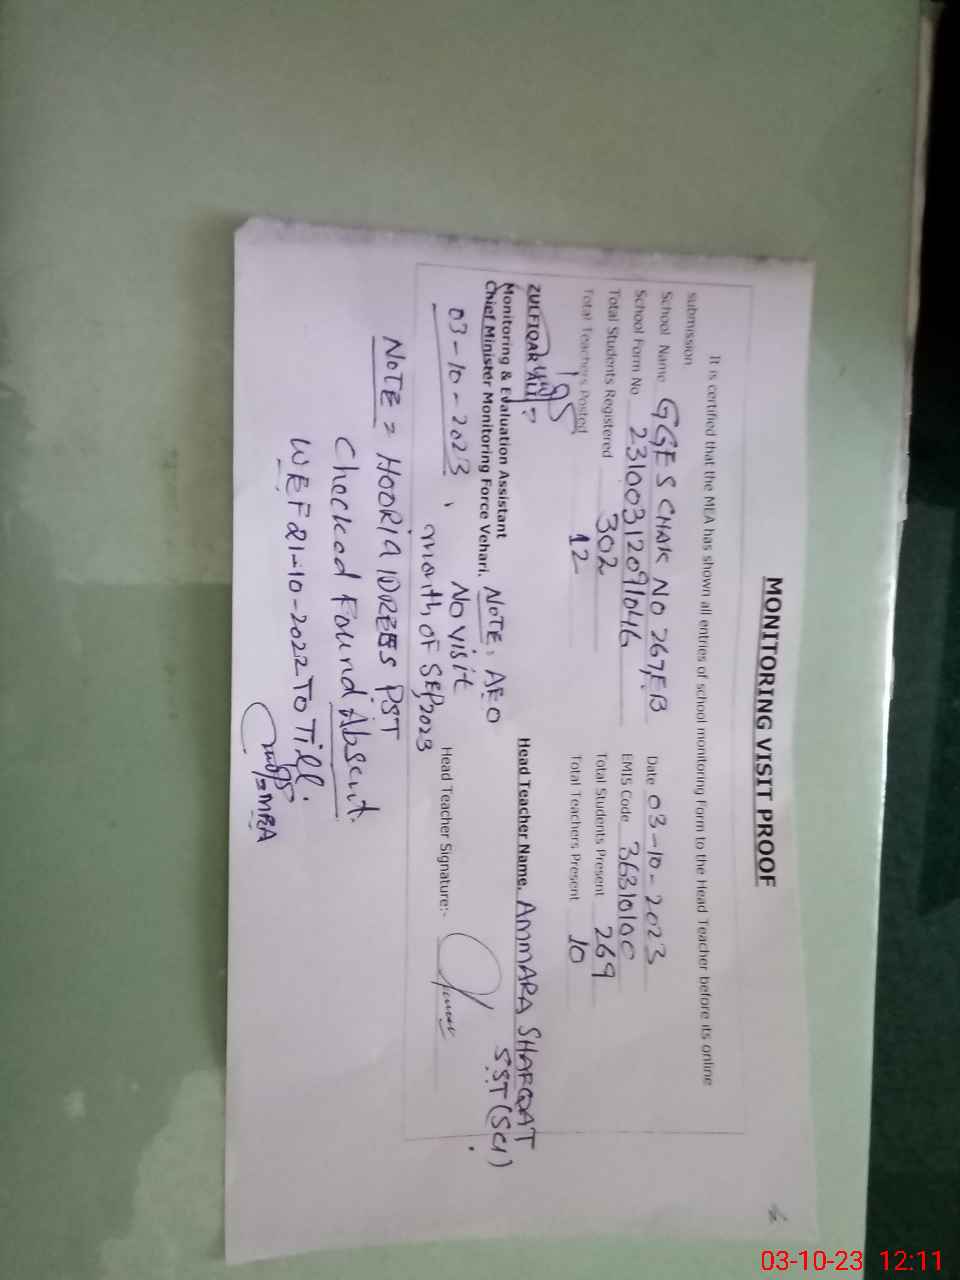 MONITORING VISIT PROOF
It is certified that the MEA has shown all entries of school monitoring Form to the Head Teacher before its online
submission.
School Name GGES CHAK NO 267EB Date 03-10-2023
School Form No 23100312091046 EMIS Code 36310100
Total Students Registered 302 Total Students Present 269
Total Teachers Posted 12 Total Teachers Present 10
ZULFIQAR ALI
Monitoring & Evaluation Assistant
Chief Minister Monitoring Force Vehari.
03-10-2023
NOTE: AEO
No visit
month OF SEP2023
Head Teacher Name. AMMARA SHAFQAT
SST(SCI)
Head Teacher Signature:-
NOTE = HOORIA IDREES PST
Checked Found Absent.
WEF 21-10-2022 TO Till.
03-10-23 12:11